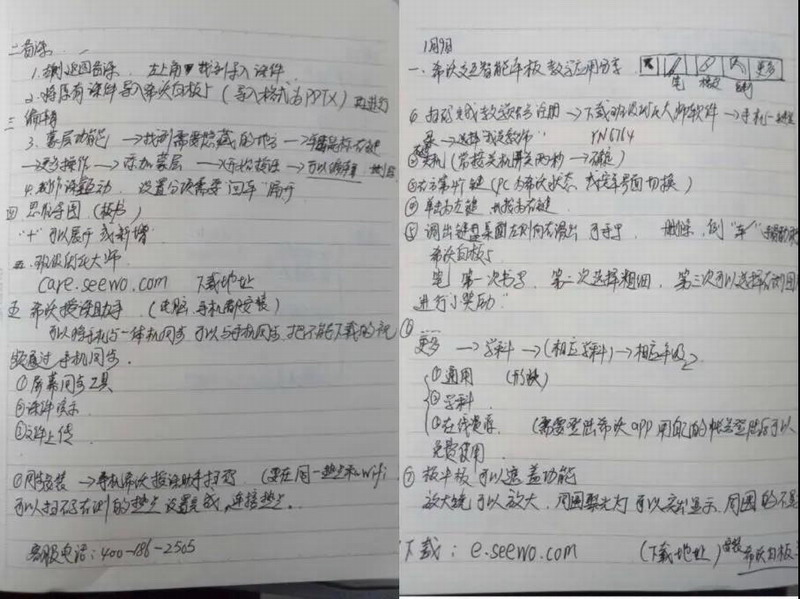 二备课
1.找到返回备课，左上角 找到导入课件
2.将原有课件导入希沃白板5（导入格式为PPTX）再进行
三 编辑
3.蒙层功能 →找到需要隐藏的地方→单击鼠标右键
→更多操作→添加蒙层→开始授课→可以
4.制作课堂活动，设置分类需要"回车"展开
四 思维导图（板书）
"+"可以展开或新增
五、班级优化大师
care.seewo.com 下载地址
五 希沃授课助手（电脑、手机都安装）
可以将手机与一体机同步，可以与手机同步，把不能下载的视
频通过手机同步.
①屏幕同步工具
②课件演示
③文件上传
①网络安装→手机希沃授课助手扫码（要在同一热点和Wifi
可以扫不了右侧的热点设置完成，连接热点.
客服电话：400-186-2505
1月9日
一、希沃交互智能平板教学应用分享
更多
笔
下载班级优化大师软件→手机一键登
录→选择"我是教师" YN6764
关机（常按关机开关两秒→确定）
右方第4个键（PC为希沃状态
④单击为左键 长按为右键
⑤调出键盘桌面左侧向右滑出
希沃白板5
笔 第一次书写，第二次选择粗细，第三次可以选择右侧图
进行小奖励"
更多→学科→（相应学科）→相应年级
①通用（形状）
②学科
③在线资源（需要登陆希沃app用自己的帐号登陆后可以
免费使用
⑦板中板可以遮盖功能
放大镜可以放大，周围聚光灯可以突出显示，周围的不显
下载：e.seewo.com （下载地址）安装
希沃白板